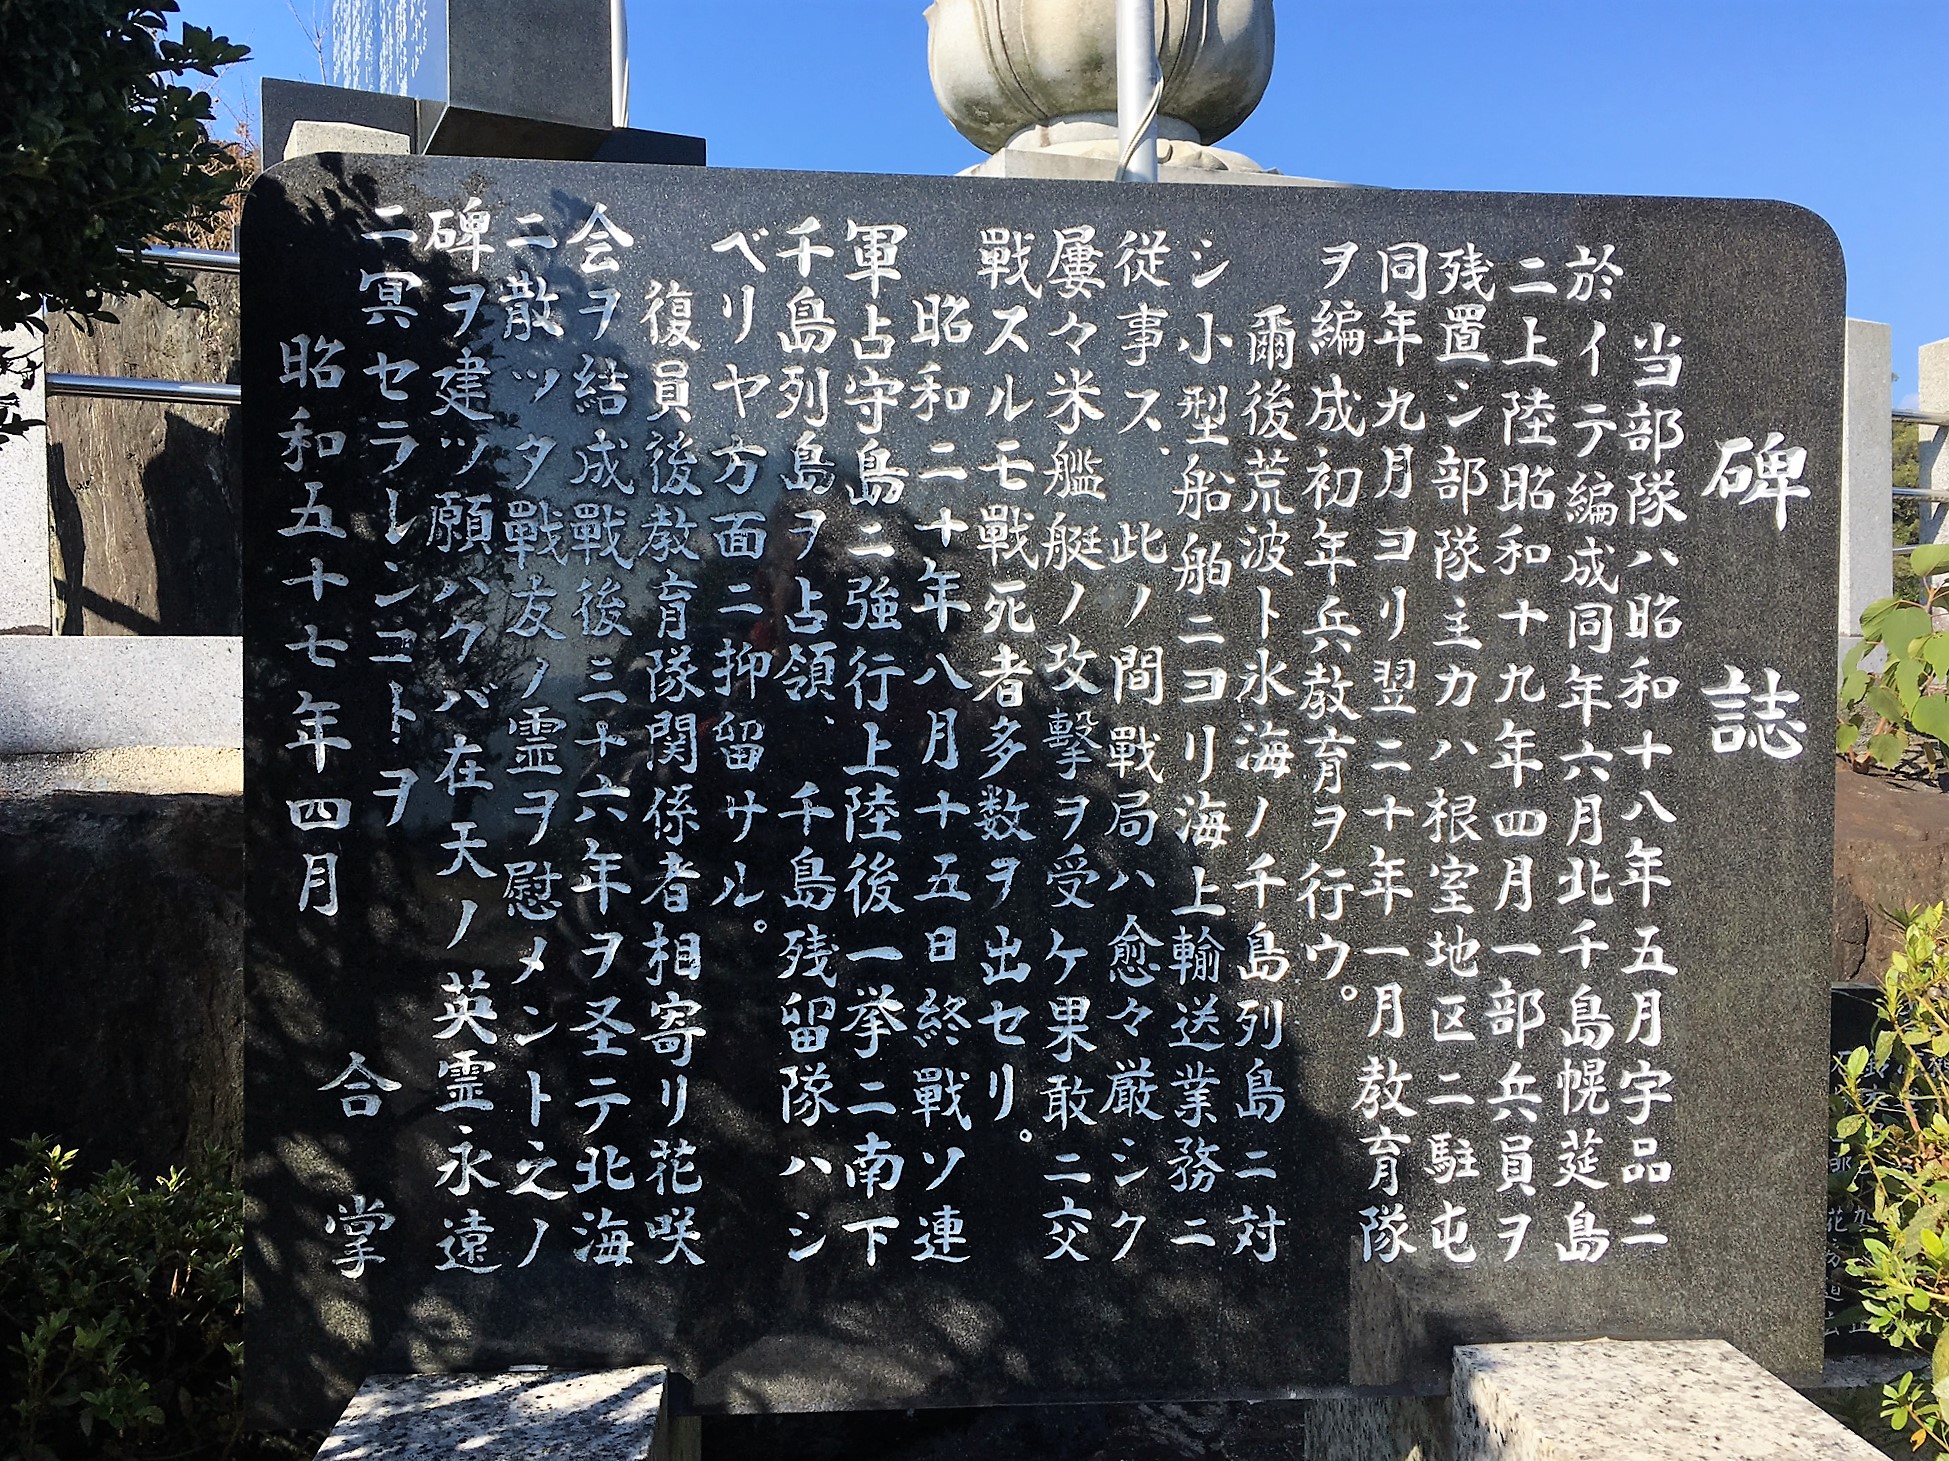 碑誌
当部隊ハ昭和十八年五月宇品ニ
於イテ編成同年六月北千島幌莚島
ニ上陸昭和十九年四月一部兵員ヲ
残置シ部隊主力ハ根室地区ニ駐屯
同年九月ヨリ翌二十年一月教育隊
ヲ編成初年兵教育ヲ行ウ。
爾後荒波ト氷海ノ千島列島ニ対
シ小型船舶ニヨリ海上輸送業務ニ
従事ス、此ノ間戰局ハ愈々厳シク
屢々米艦艇ノ攻撃ヲ受ケ果敢ニ交
戰スルモ戰死者多数ヲ出セリ。
昭和二十年八月十五日終戰ソ連
軍占守島ニ強行上陸後一挙ニ南下
千島列島ヲ占領、千島残留隊ハシ
ベリヤ方面ニ抑留サル。
復員後教育隊関係者相寄リ花咲
会ヲ結成戰後三十六年ヲ圣テ北海
ニ散ッタ戰友ノ霊ヲ慰メント之ノ
碑ヲ建ツ願ハクバ在天ノ英霊永遠
ニ冥セラレンコトヲ
合掌
昭和五十七年四月